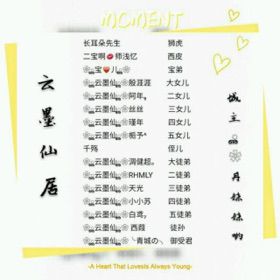 MOMENT
云墨仙居
长耳朵先生 狮虎
二宝啊💋师浅忆 西皮
宝❤儿 宝弟
云墨仙 殷涯涯 大女儿
云墨仙 阿年。 二女儿
云墨仙 丝丝 三女儿
云墨仙 瑾年 四女儿
云墨仙 栀予^ 五女儿
千殇 侄儿
云墨仙 润健超。 大徒弟
云墨仙 RHMLY 二徒弟
云墨仙 天光 三徒弟
云墨仙 小小苏 四徒弟
云墨仙 白鸢， 五徒弟
云墨仙 西葭 徒孙
云墨仙╰青城の╮ 御受君
城主 丹妹妹哟
-A Heart That LovesIs Always Young-